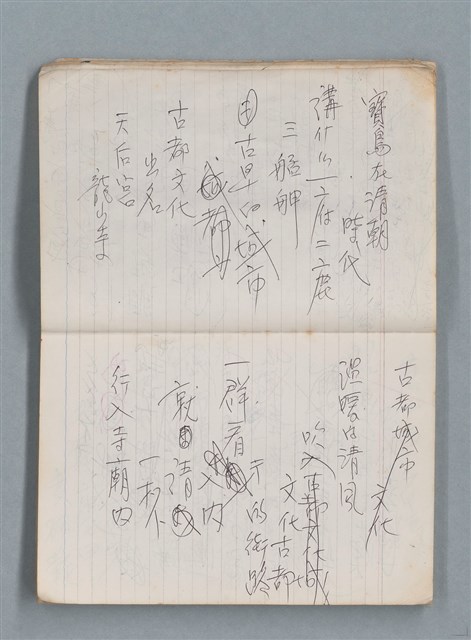 寶島在清朝
時代
講什么一府二鹿
三艋舺
由古早的城市
成都母
古都文化
出名
天后宮
龍山寺
古都城市
文化
溫暖的清風
吹入古都文化城
文化古都城
一群看不
的街路
入內
就清
行入寺廟內